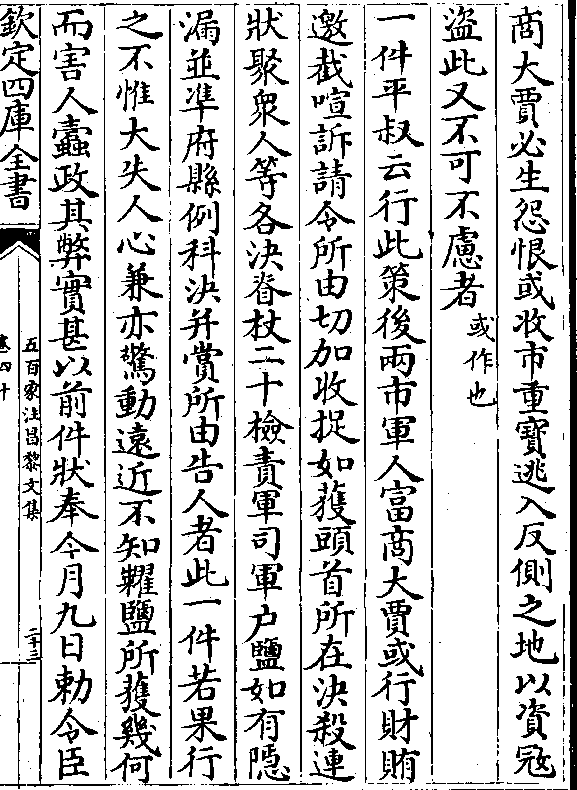 商大賈必生怨恨或收市重寳逃入反側之地以資冦
盜此又不可不慮者或作也
一件平叔云行此策後兩市軍人富商大賈或行財賄
邀截喧訴請令所由切加收捉如獲頭首所在決殺連
狀聚衆人等各決脊杖二十檢責軍司軍户鹽如有隠
漏並凖府縣例科決并賞所由告人者此一件若果行
之不惟大失人心兼亦驚動遠近不知糶鹽所獲幾何
而害人蠧政其弊實甚以前件狀奉今月九日勅令臣
欽定四庫全書
五百家注昌黎文集
卷四十
二十三